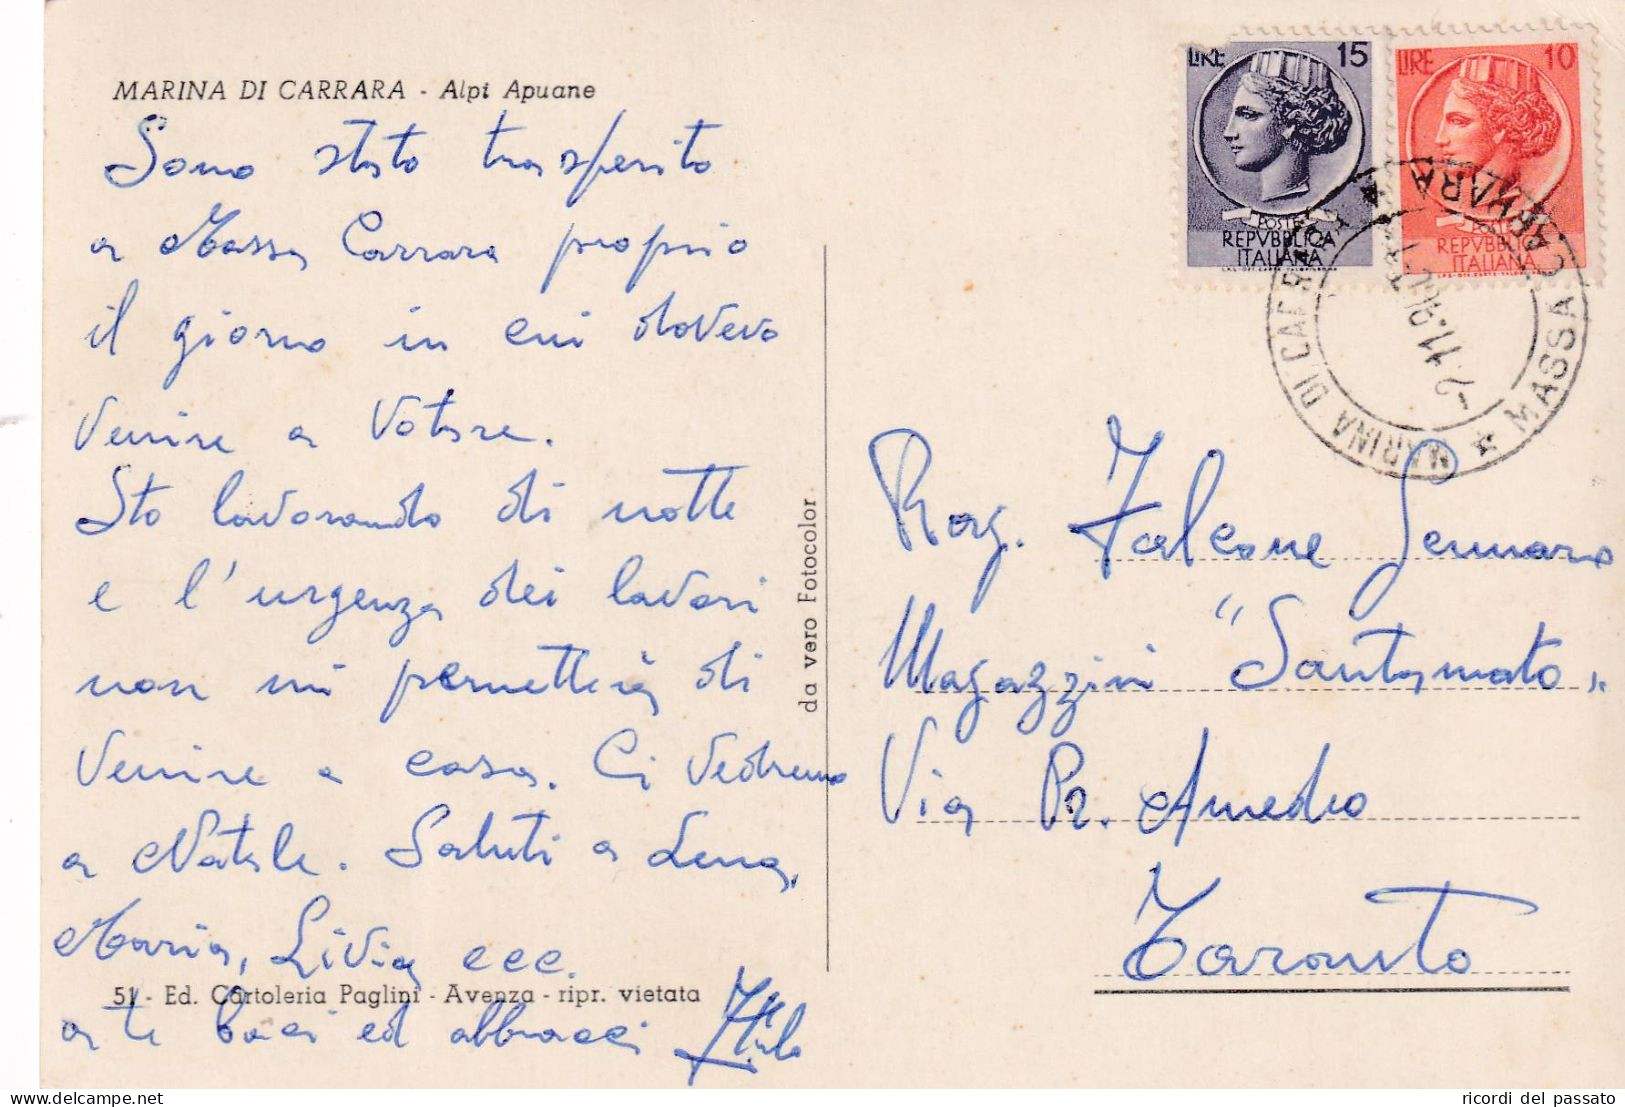 MARINA DI CARRARA - Alpi Apuane
Sono stato trasferito
a Massa Carrara proprio
il giorno in cui dovevo
venire a votare.
Sto lavorando di notte
e l'urgenza dei lavori
non mi permetterà di
venire a casa. Ci vedremo
a Natale. Saluti a Lena,
Maria, Livia ecc.
51 - Ed. Cartoleria Paglini - Avenza - ripr. vietata
a te baci ed abbracci
da vero Fotocolor
LIRE 15
POSTE
REPVBBLICA
ITALIANA
LIRE 10
POSTE
REPVBBLICA
ITALIANA
MARINA DI CARRARA
MASSA CARRARA
Rag. Falcone Gennaro
Magazzini "Santomato"
Via Pr. Amedeo
Taranto
ricordi del passato